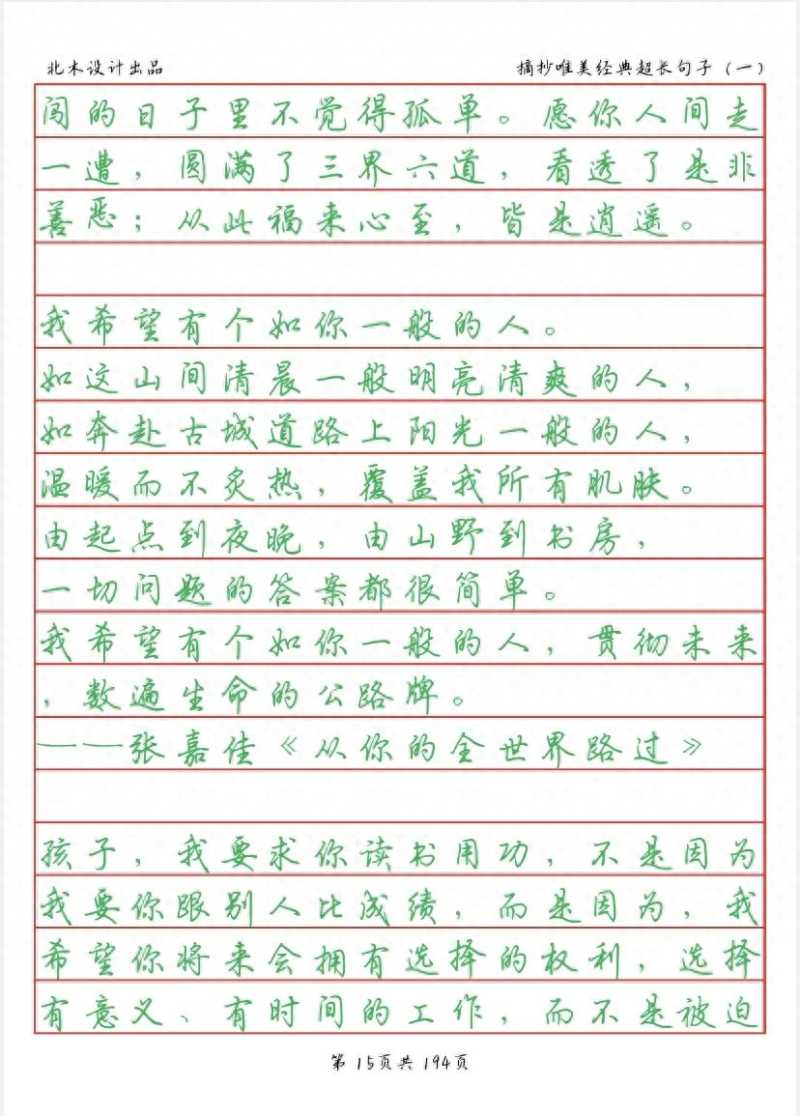 北木设计出品
摘抄唯美经典超长句子（一）
闯的日子里不觉得孤单。愿你人间走
一遭，圆满了三界六道，看透了是非
善恶；从此福来心至，皆是逍遥。
我希望有个如你一般的人。
如这山间清晨一般明亮清爽的人，
如奔赴古城道路上阳光一般的人，
温暖而不炙热，覆盖我所有肌肤。
由起点到夜晚，由山野到书房，
一切问题的答案都很简单。
我希望有个如你一般的人，贯彻未来
，数遍生命的公路牌。
——张嘉佳《从你的全世界路过》
孩子，我要求你读书用功，不是因为
我要你跟别人比成绩，而是因为，我
希望你将来会拥有选择的权利，选择
有意义、有时间的工作，而不是被迫
第 15页共 194页